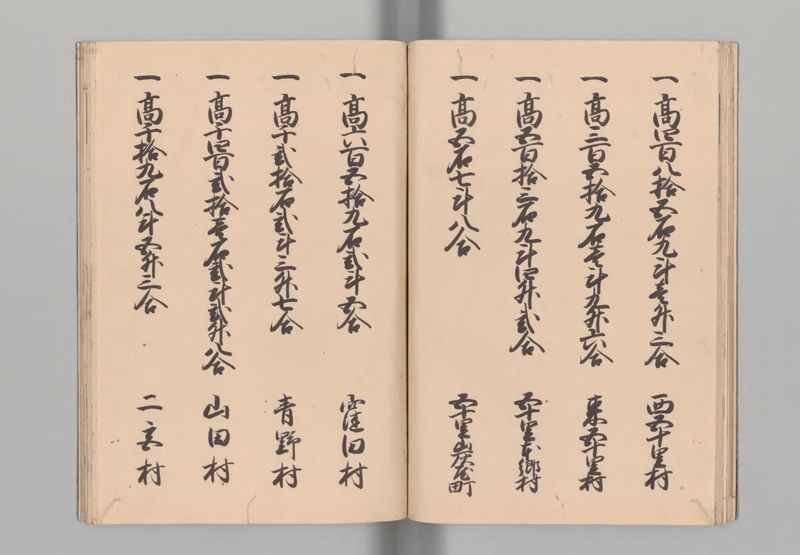 一高四百八拾五石九斗壱升三合 西五十里村
一高三百五拾九石壱斗九升六合 東五十里村
一高五百拾三石九斗四升弐合 五十里本郷村
一高五石七斗八合 五十里炭屋町
一高六百五拾九石弐斗五合 窪田村
一高千弐拾石弐斗三升七合 青野村
一高千四百弐拾壱石弐斗弐升八合 山田村
一高千拾九石八斗五升三合 二宮村